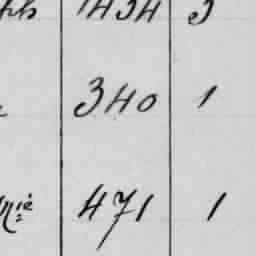 1434 3
340 1
471 1